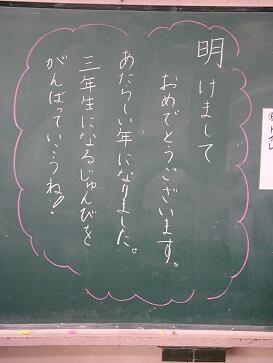 明けまして
おめでとうございます。
あたらしい年になりました。
三年生になるじゅんびを
がんばっていこうね!!